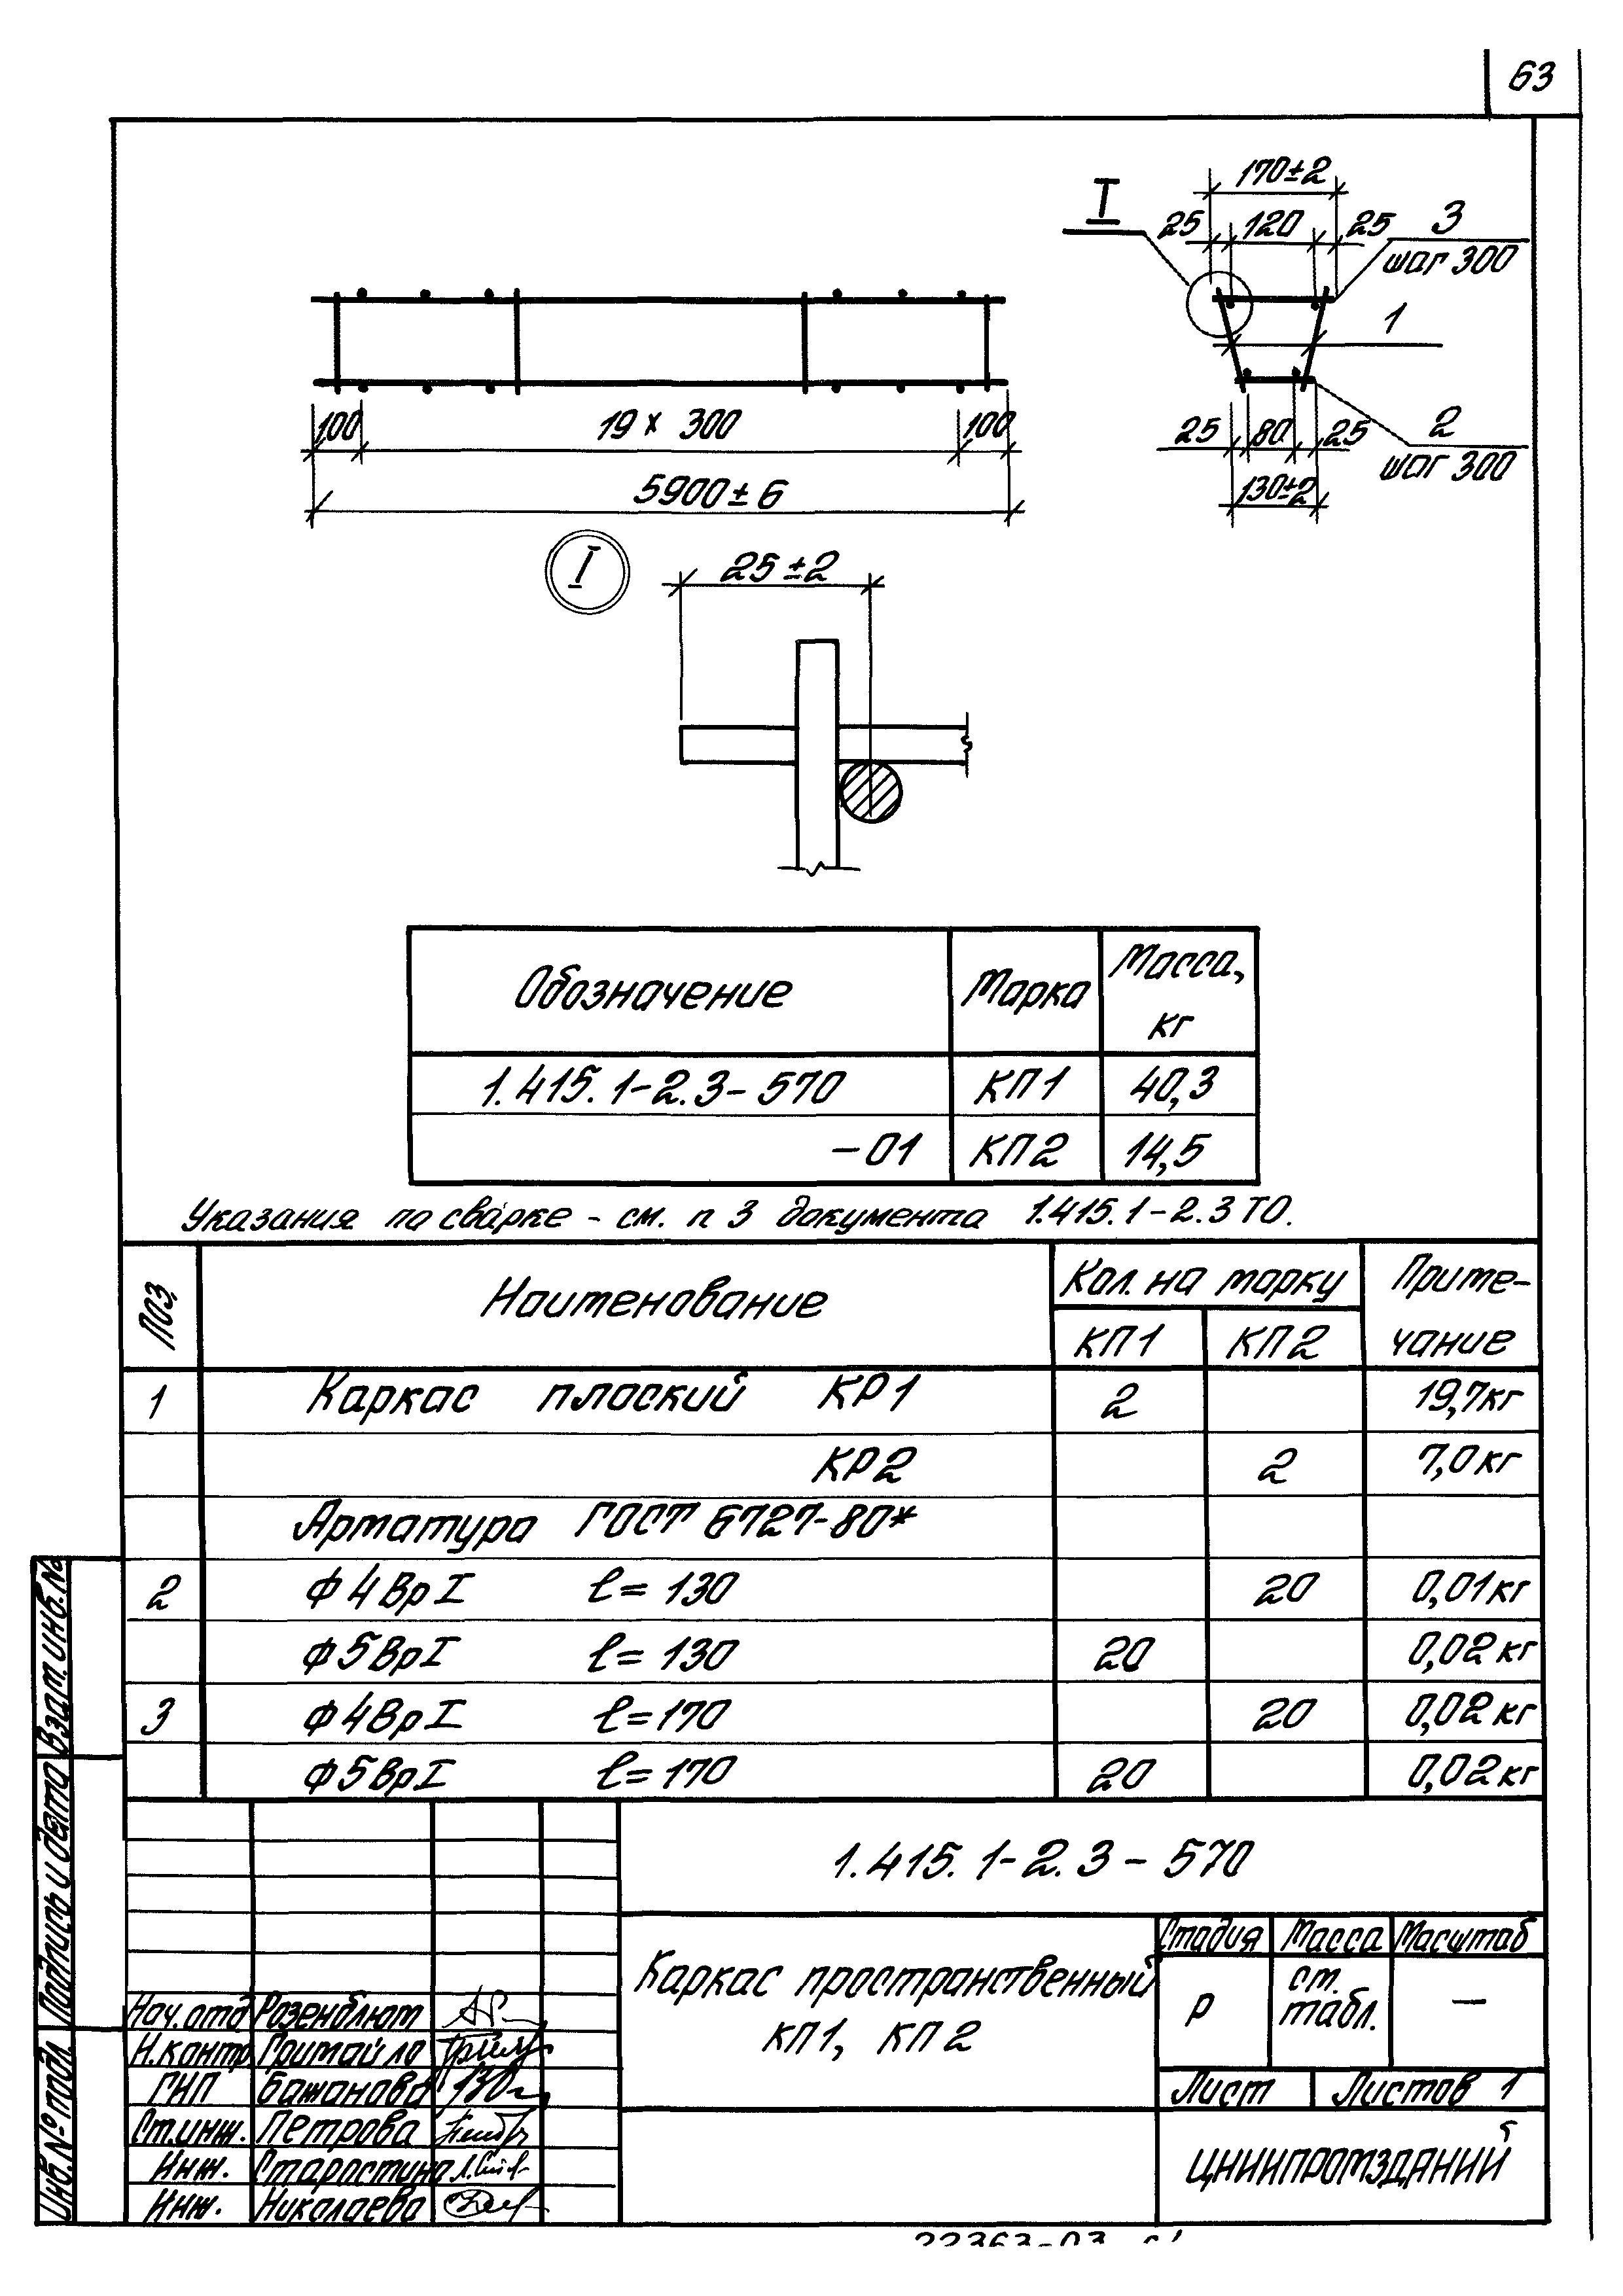 63
170±2
I
25 120 25
3
шаг 300
1
100 19 × 300 100
5900±6
25 80 25
2
шаг 300
130±2
I
25±2
Обозначение Марка Масса, кг
1.415.1-2.3-570 КП1 40,3
-01 КП2 14,5
Указания по сварке - см. п 3 документа 1.415.1-2.3 ТО.
Поз. Наименование Кол. на марку Приме-
КП1 КП2 чание
1 Каркас плоский КР1 2 19,7кг
КР2 2 7,0кг
Арматура ГОСТ 6727-80*
2 ф4ВрI ℓ=130 20 0,01кг
ф5ВрI ℓ=130 20 0,02кг
3 ф4ВрI ℓ=170 20 0,02кг
ф5ВрI ℓ=170 20 0,02кг
Взам. инв. №
Подпись и дата
Инв. № подл.
1.415.1-2.3-570
Каркас пространственный
КП1, КП2
Стадия Масса Масштаб
р см. табл. —
Лист Листов 1
ЦНИИПРОМЗДАНИЙ
Нач. отд Розенблюм
Н. контр Гритайло
ГИП Бажанова
Ст. инж. Петрова
Инж. Старостина
Инж. Николаева
22363-03